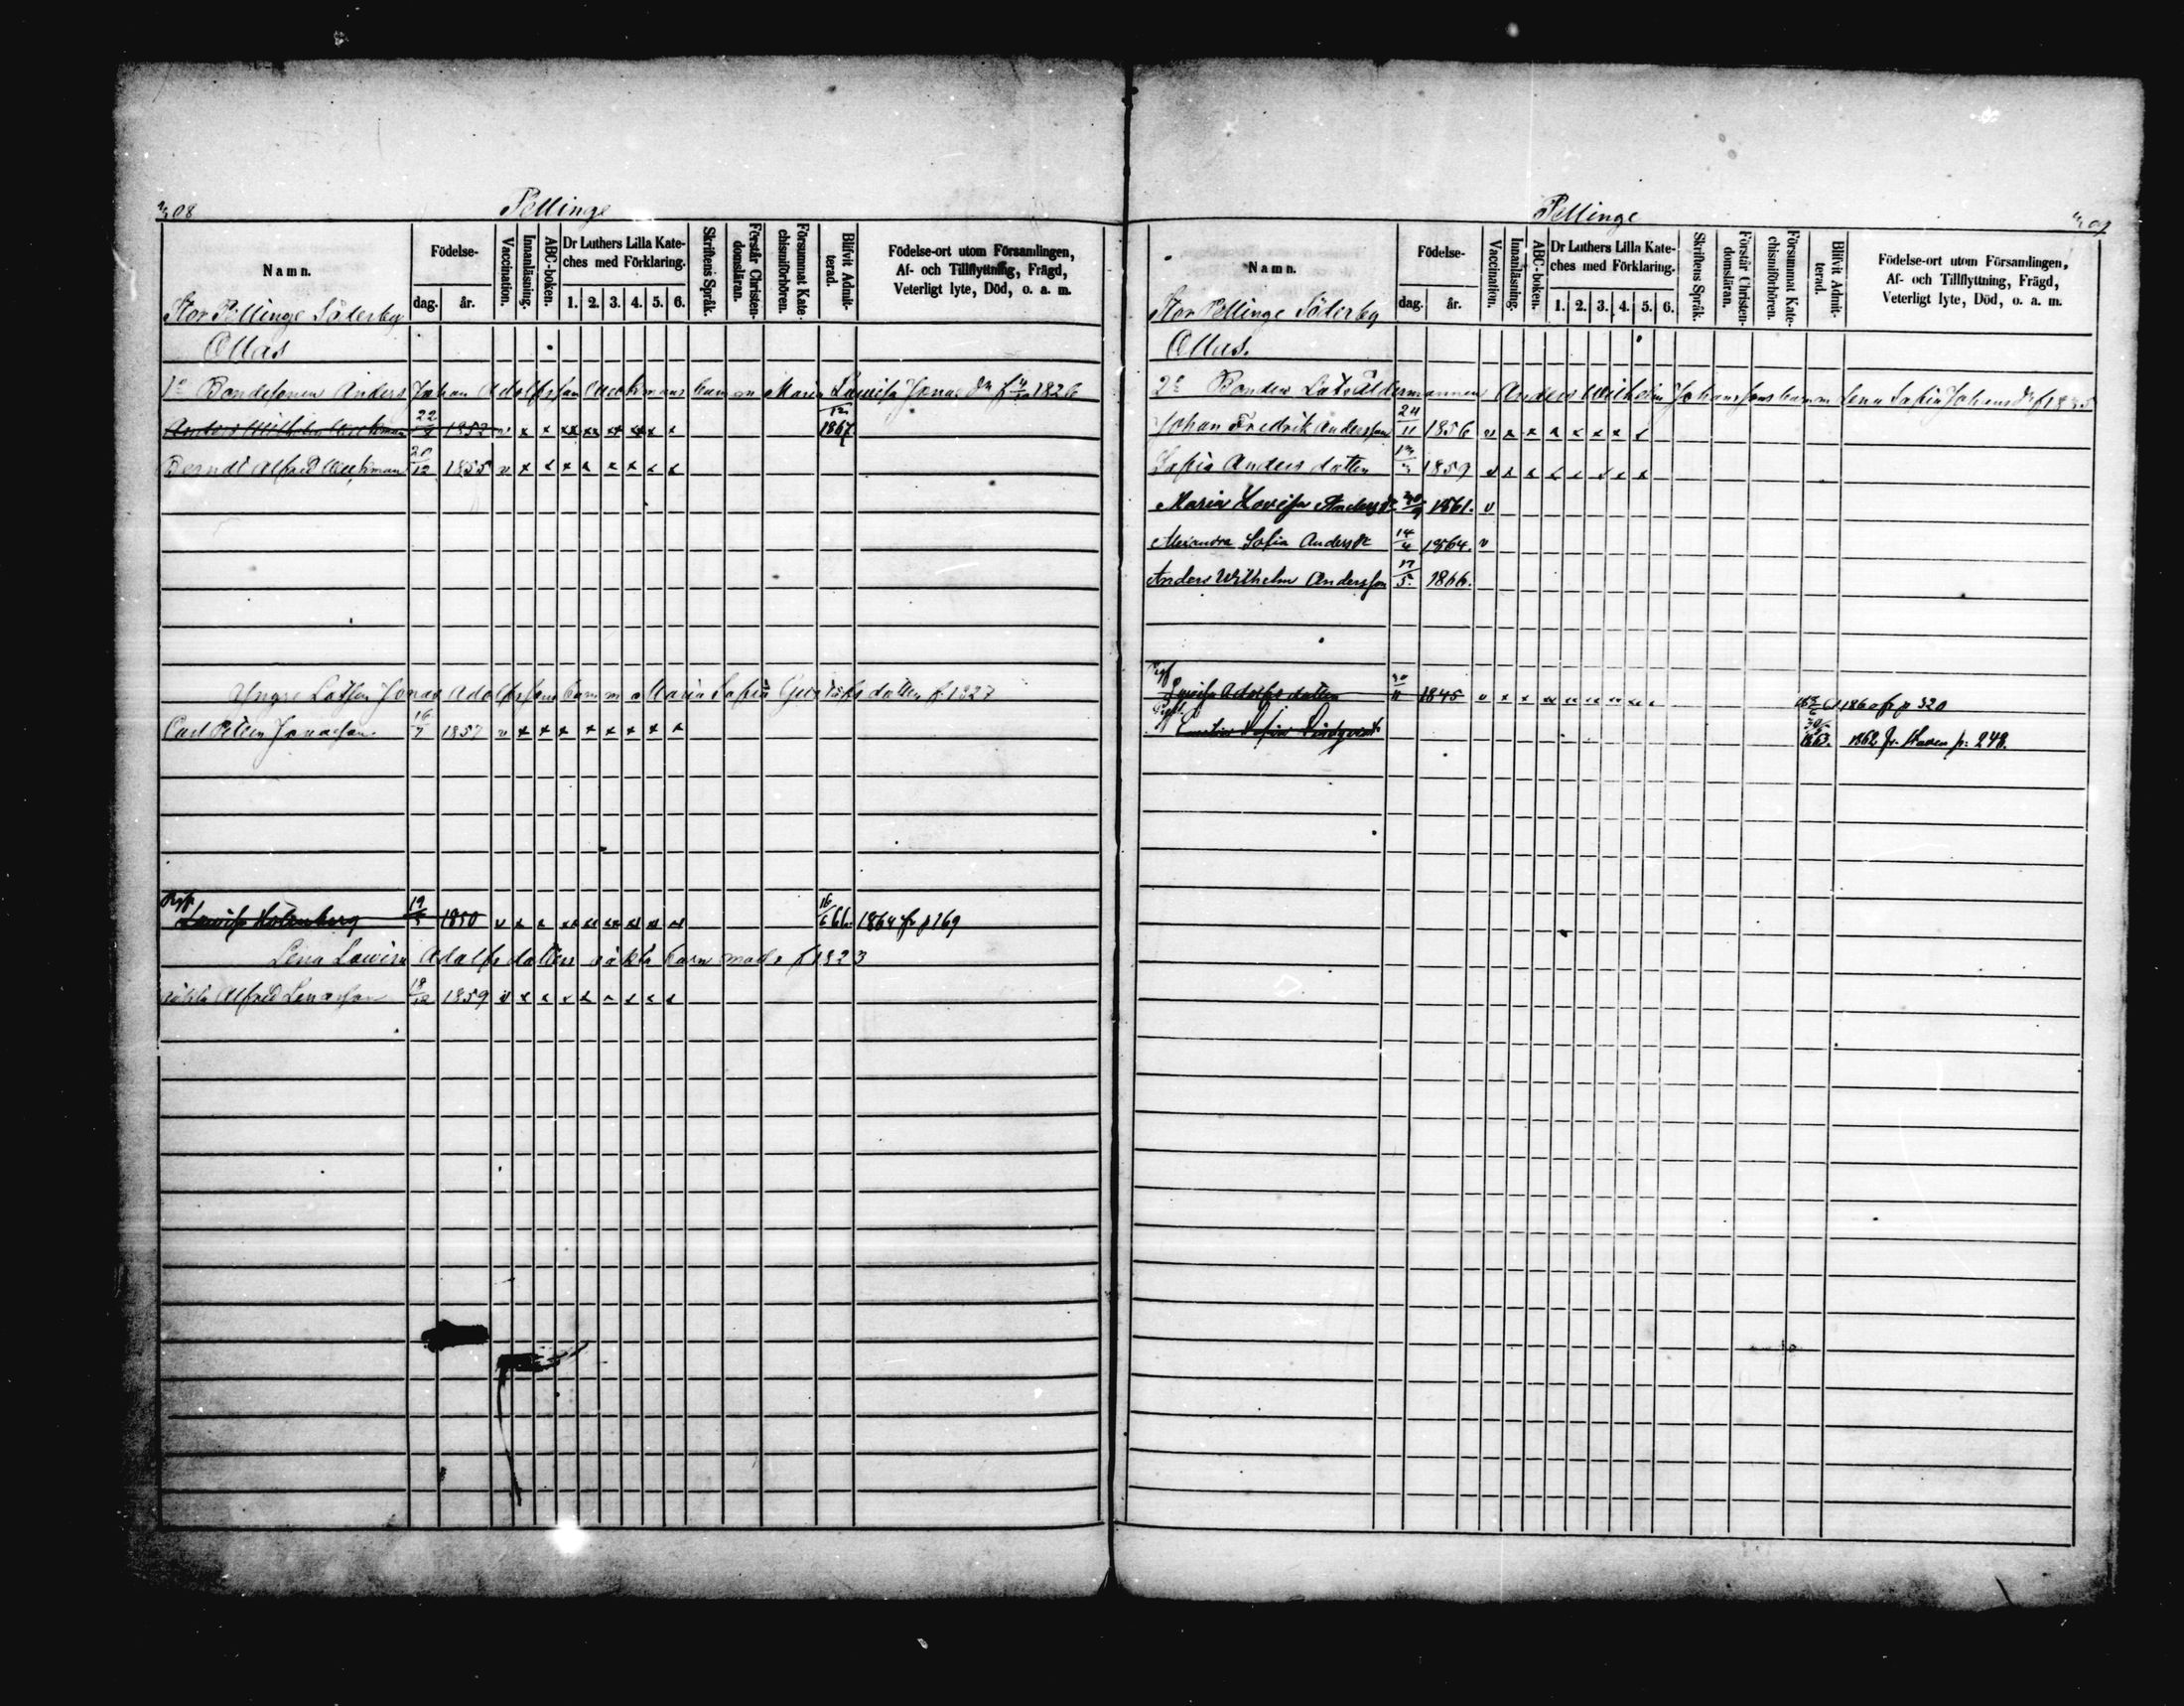 208
Pellinge
Namn.
Födelse-
dag.
år.
Vaccination.
Innanläsning.
ABC-boken.
Dr Luthers Lilla Kate-
ches med Förklaring.
1. 2. 3. 4. 5. 6.
Skriftens Språk.
Förstår Christen-
domsläran.
Försummat Kate-
chismiförhören.
Blifvit Admit-
terad.
Födelse-ort utom Församlingen,
Af- och Tillflyttning, Frägd,
Veterligt lyte, Död, o. a. m.
Stor Pellinge Söderby
Ollas
1o Bondesonen Anders Johan Adolfsson barn m Maria Lovisa Jonas dr 1826
Anders Wilhelm 22/8 1852 v x x xx xx xx xx x x 1867
Berndt Alfred 20/12 1855 v x x x x x x x x
Yngre Jonas Adolfssons barn m Maria Sofia Gustafs dotter f 1827
Carl Petter Jonasson 16/7 1857 v x x x x x x x x
Pig.
Lovisa Holmberg 19/5 1850 v x x xx xx xx xx x x 16/6 66. 1864 fr p 169
Lena Lovisa Adolfs dotters oäkta barn f 1823
oäkta Alfred Lenasson 1859 v x x x x x x x x
Pellinge
209
Namn.
Födelse-
dag.
år.
Vaccination.
Innanläsning.
ABC-boken.
Dr Luthers Lilla Kate-
ches med Förklaring.
1. 2. 3. 4. 5. 6.
Skriftens Språk.
Förstår Christen-
domsläran.
Försummat Kate-
chismiförhören.
Blifvit Admit-
terad.
Födelse-ort utom Församlingen,
Af- och Tillflyttning, Frägd,
Veterligt lyte, Död, o. a. m.
Stor Pellinge Söderby
Ollas.
2o Bonden Lots Åldermannen Anders Wilhelm Johanssons barn m Lena Sofia Johans dr f 1835
Johan Fredrik Andersson 24/11 1856 v x x x x x x x
Sofia Anders dotter 1859 v x x x x x x x
Maria Lovisa Anders dr 30/9 1861. v
Alexandra Sofia Anders dr 14/4 1864. v
Anders Wilhelm Andersson 17/5. 1866.
Pig.
Lovisa Adolfs dotter 30/11 1845 v x x 1860 fr p 320
Pig.
Sofia Lindqvist 30/5 1863. 1862 fr. p: 248.